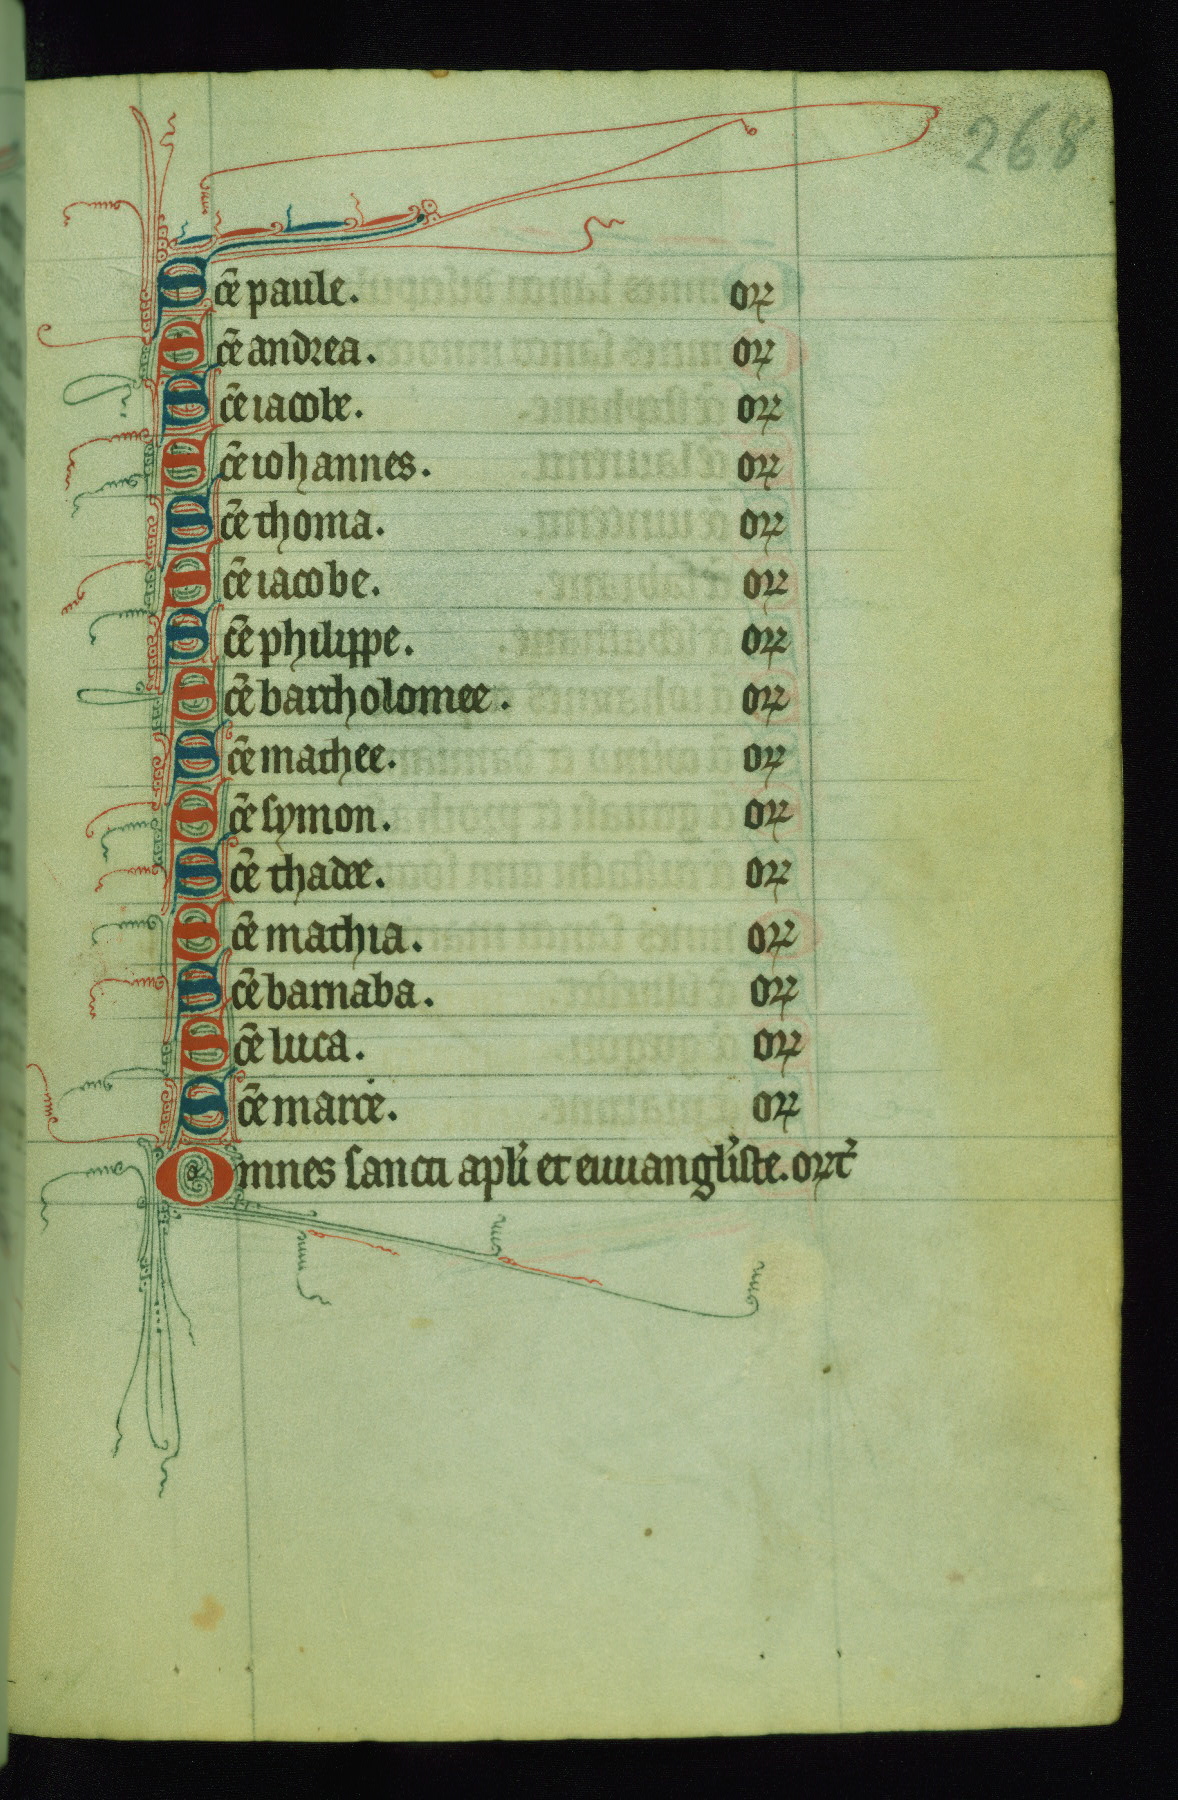 268
Sc̄e paule. orꝝ
Sc̄e andrea. orꝝ
Sc̄e iacobe. orꝝ
Sc̄e iohannes. orꝝ
Sc̄e thoma. orꝝ
Sc̄e iacobe. orꝝ
Sc̄e philippe. orꝝ
Sc̄e bartholomee. orꝝ
Sc̄e mathee. orꝝ
Sc̄e symon. orꝝ
Sc̄e thadee. orꝝ
Sc̄e mathia. orꝝ
Sc̄e barnaba. orꝝ
Sc̄e luca. orꝝ
Sc̄e marce. orꝝ
Omnes sancti apl̓i et euuangl̓iste. orꝝt̓